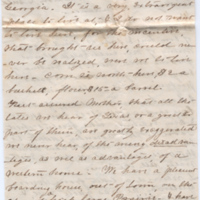 Georgia. It is a very extravagant
place to live at, & I do not want
to live here, for the
that brought me here, could ne-
ver be realized, were me to live
here. Corn is worth here, $2 a
bushel, flour $15 a barrel.
Rest assured Mother, that all the
tales we hear of Texas or a great
part of them, are greatly exaggerated
we never hear of the many disadvan-
tages, as well as advantages, of a
western home. We have a pleasant
boarding house, out of town, on the
Prairie. I have